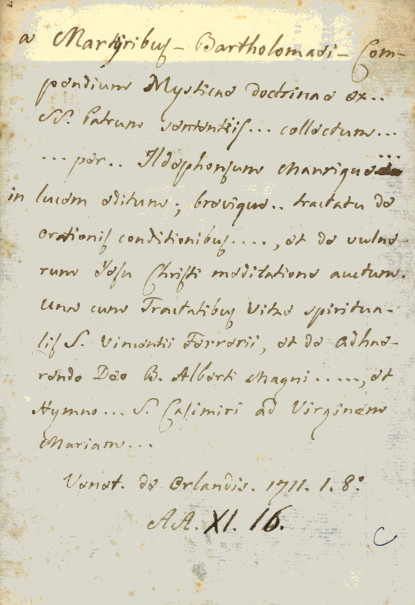 a Martyribus - Bartholomaei - Com-
pendium Mysticae doctrinae ex..
SS. Patrum sententiis... collectum...
... per.. Ildephonsum Manrique...
in lucem editum; brevique.. tractatu de
orationis conditionibus...., et de vulne-
rum Jesu Christi meditatione auctum.
Una cum Tractatibus Vitae spiritua-
lis S. Vincentii Ferrerii, et de adhae-
rendo Deo B. Alberti Magni ....., et
Hymno... S. Casimiri ad Virginem
Mariam...
Venet. de Orlandis. 1711. 1. 8.°
AA. XI. 16.
C